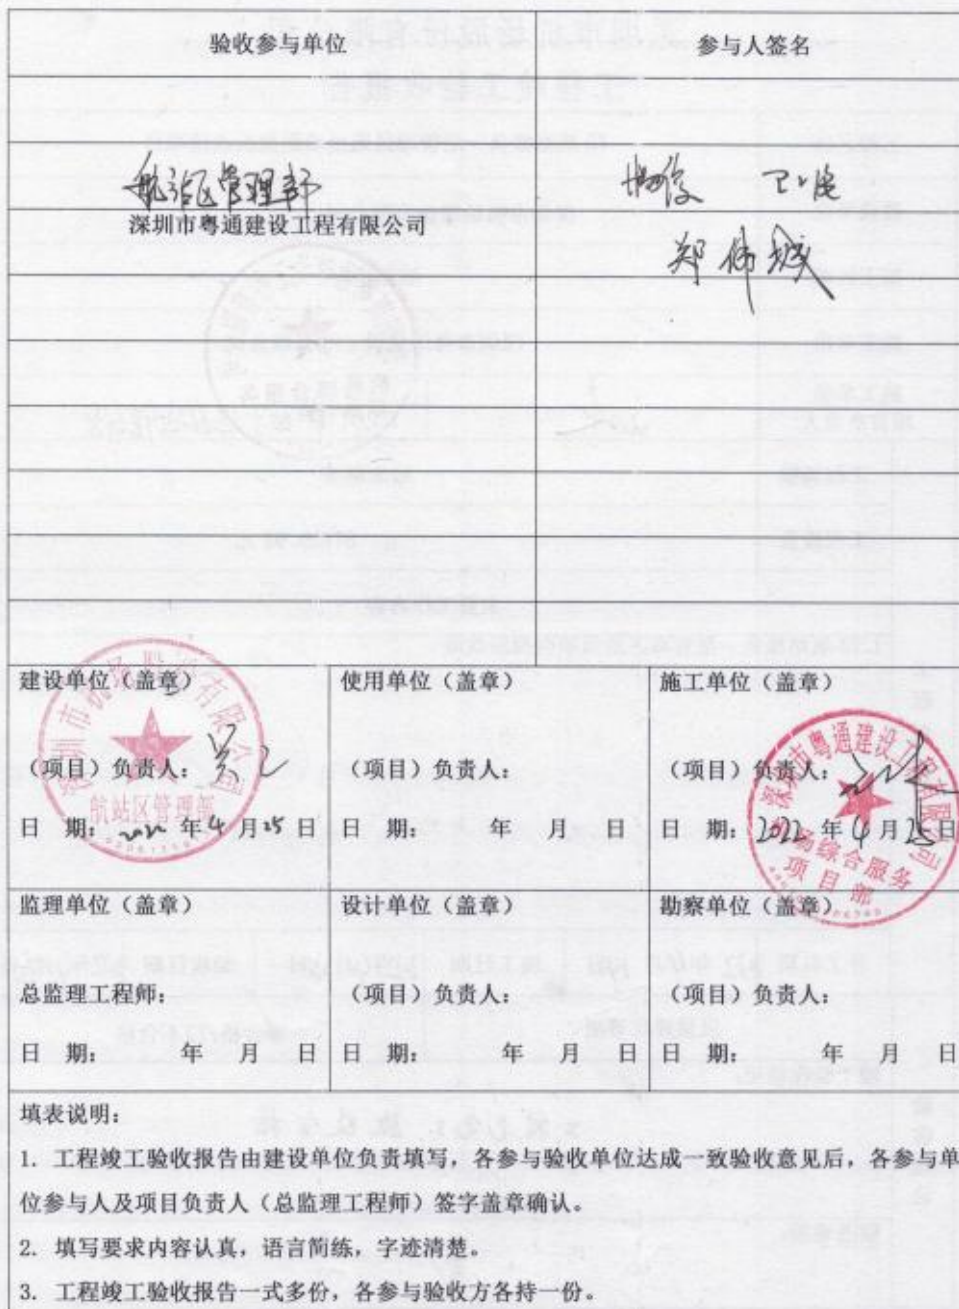 验收参与单位 参与人签名
航站区管理部
深圳市粤通建设工程有限公司
郑伟城
建设单位（盖章） 使用单位（盖章） 施工单位（盖章）
（项目）负责人： （项目）负责人： （项目）负责人：
日 期：2022 年 4 月 25 日 日 期： 年 月 日 日 期：2022 年 4 月 25 日
航站区管理部
深圳市粤通建设工程有限公司
机场综合服务
项目部
监理单位（盖章） 设计单位（盖章） 勘察单位（盖章）
总监理工程师： （项目）负责人： （项目）负责人：
日 期： 年 月 日 日 期： 年 月 日 日 期： 年 月 日
填表说明：
1. 工程竣工验收报告由建设单位负责填写，各参与验收单位达成一致验收意见后，各参与单
位参与人及项目负责人（总监理工程师）签字盖章确认。
2. 填写要求内容认真，语言简练，字迹清楚。
3. 工程竣工验收报告一式多份，各参与验收方各持一份。